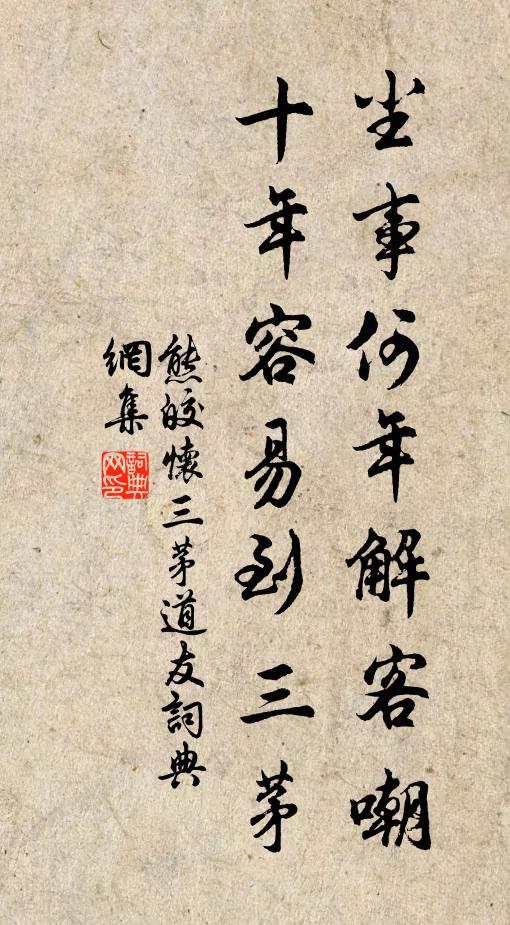 尘事何年解客嘲
十年容易到三茅
熊皎懷三茅道友詞典
網集
詞典網印